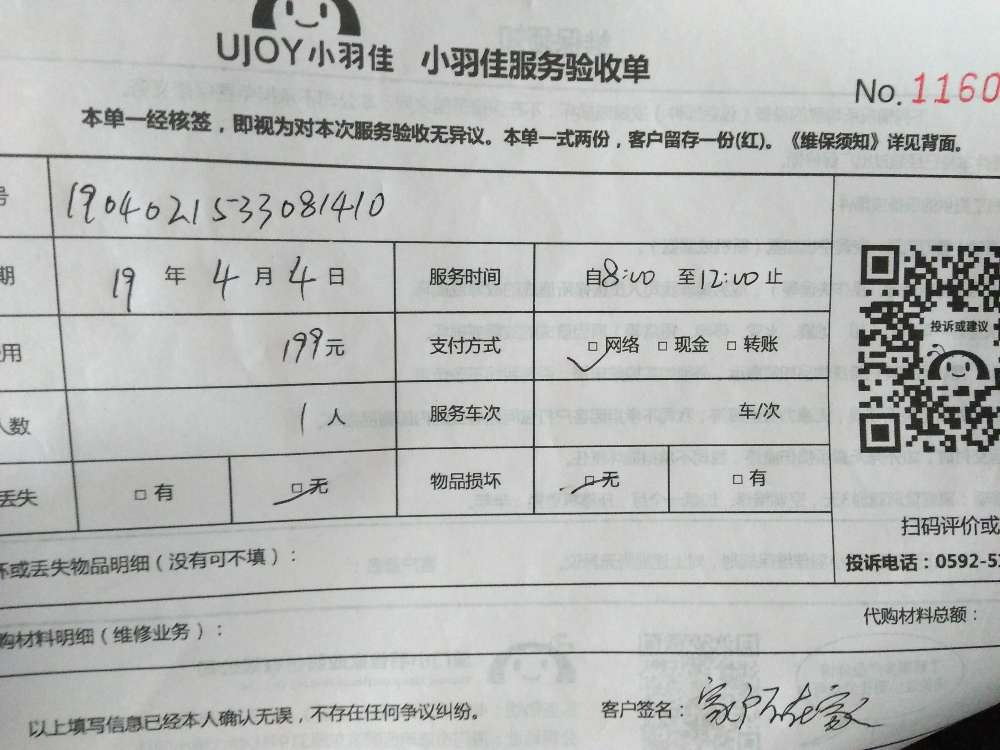 UJOY小羽佳 小羽佳服务验收单
No. 1160
本单一经核签，即视为对本次服务验收无异议。本单一式两份，客户留存一份(红)。《维保须知》详见背面。
号 1904021533081410
期 19 年 4 月 4 日 服务时间 自8:00 至12:00 止
用 199元 支付方式 □ 网络 □ 现金 □ 转账
投诉或建议
人数 1 人 服务车次 车/次
丢失 □ 有 □ 无 物品损坏 □ 无 □ 有
扫码评价或
坏或丢失物品明细（没有可不填）：
投诉电话：0592-5
购材料明细（维修业务）：
代购材料总额：
以上填写信息已经本人确认无误，不存在任何争议纠纷。 客户签名：客户不在家